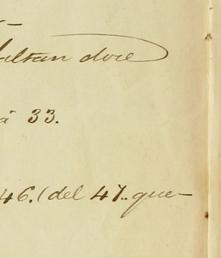 faltan doce
á 33.
46. (del 47. que-